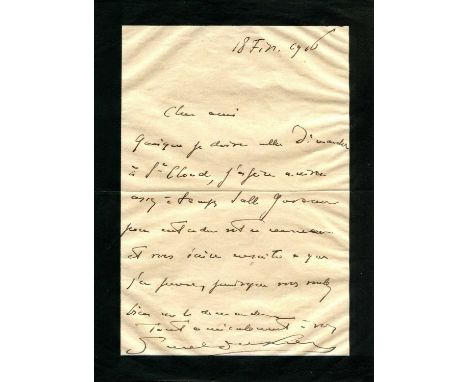 18 Fév. 1906
Cher ami
Quoique je doive aller Dimanche
à St Cloud, j'espère arriver
assez à temps Salle Gaveau
pour entendre votre
et vous écrire ensuite ce que
j'en pense, puisque vous voulez
bien me le demander
Tout amicalement à vous